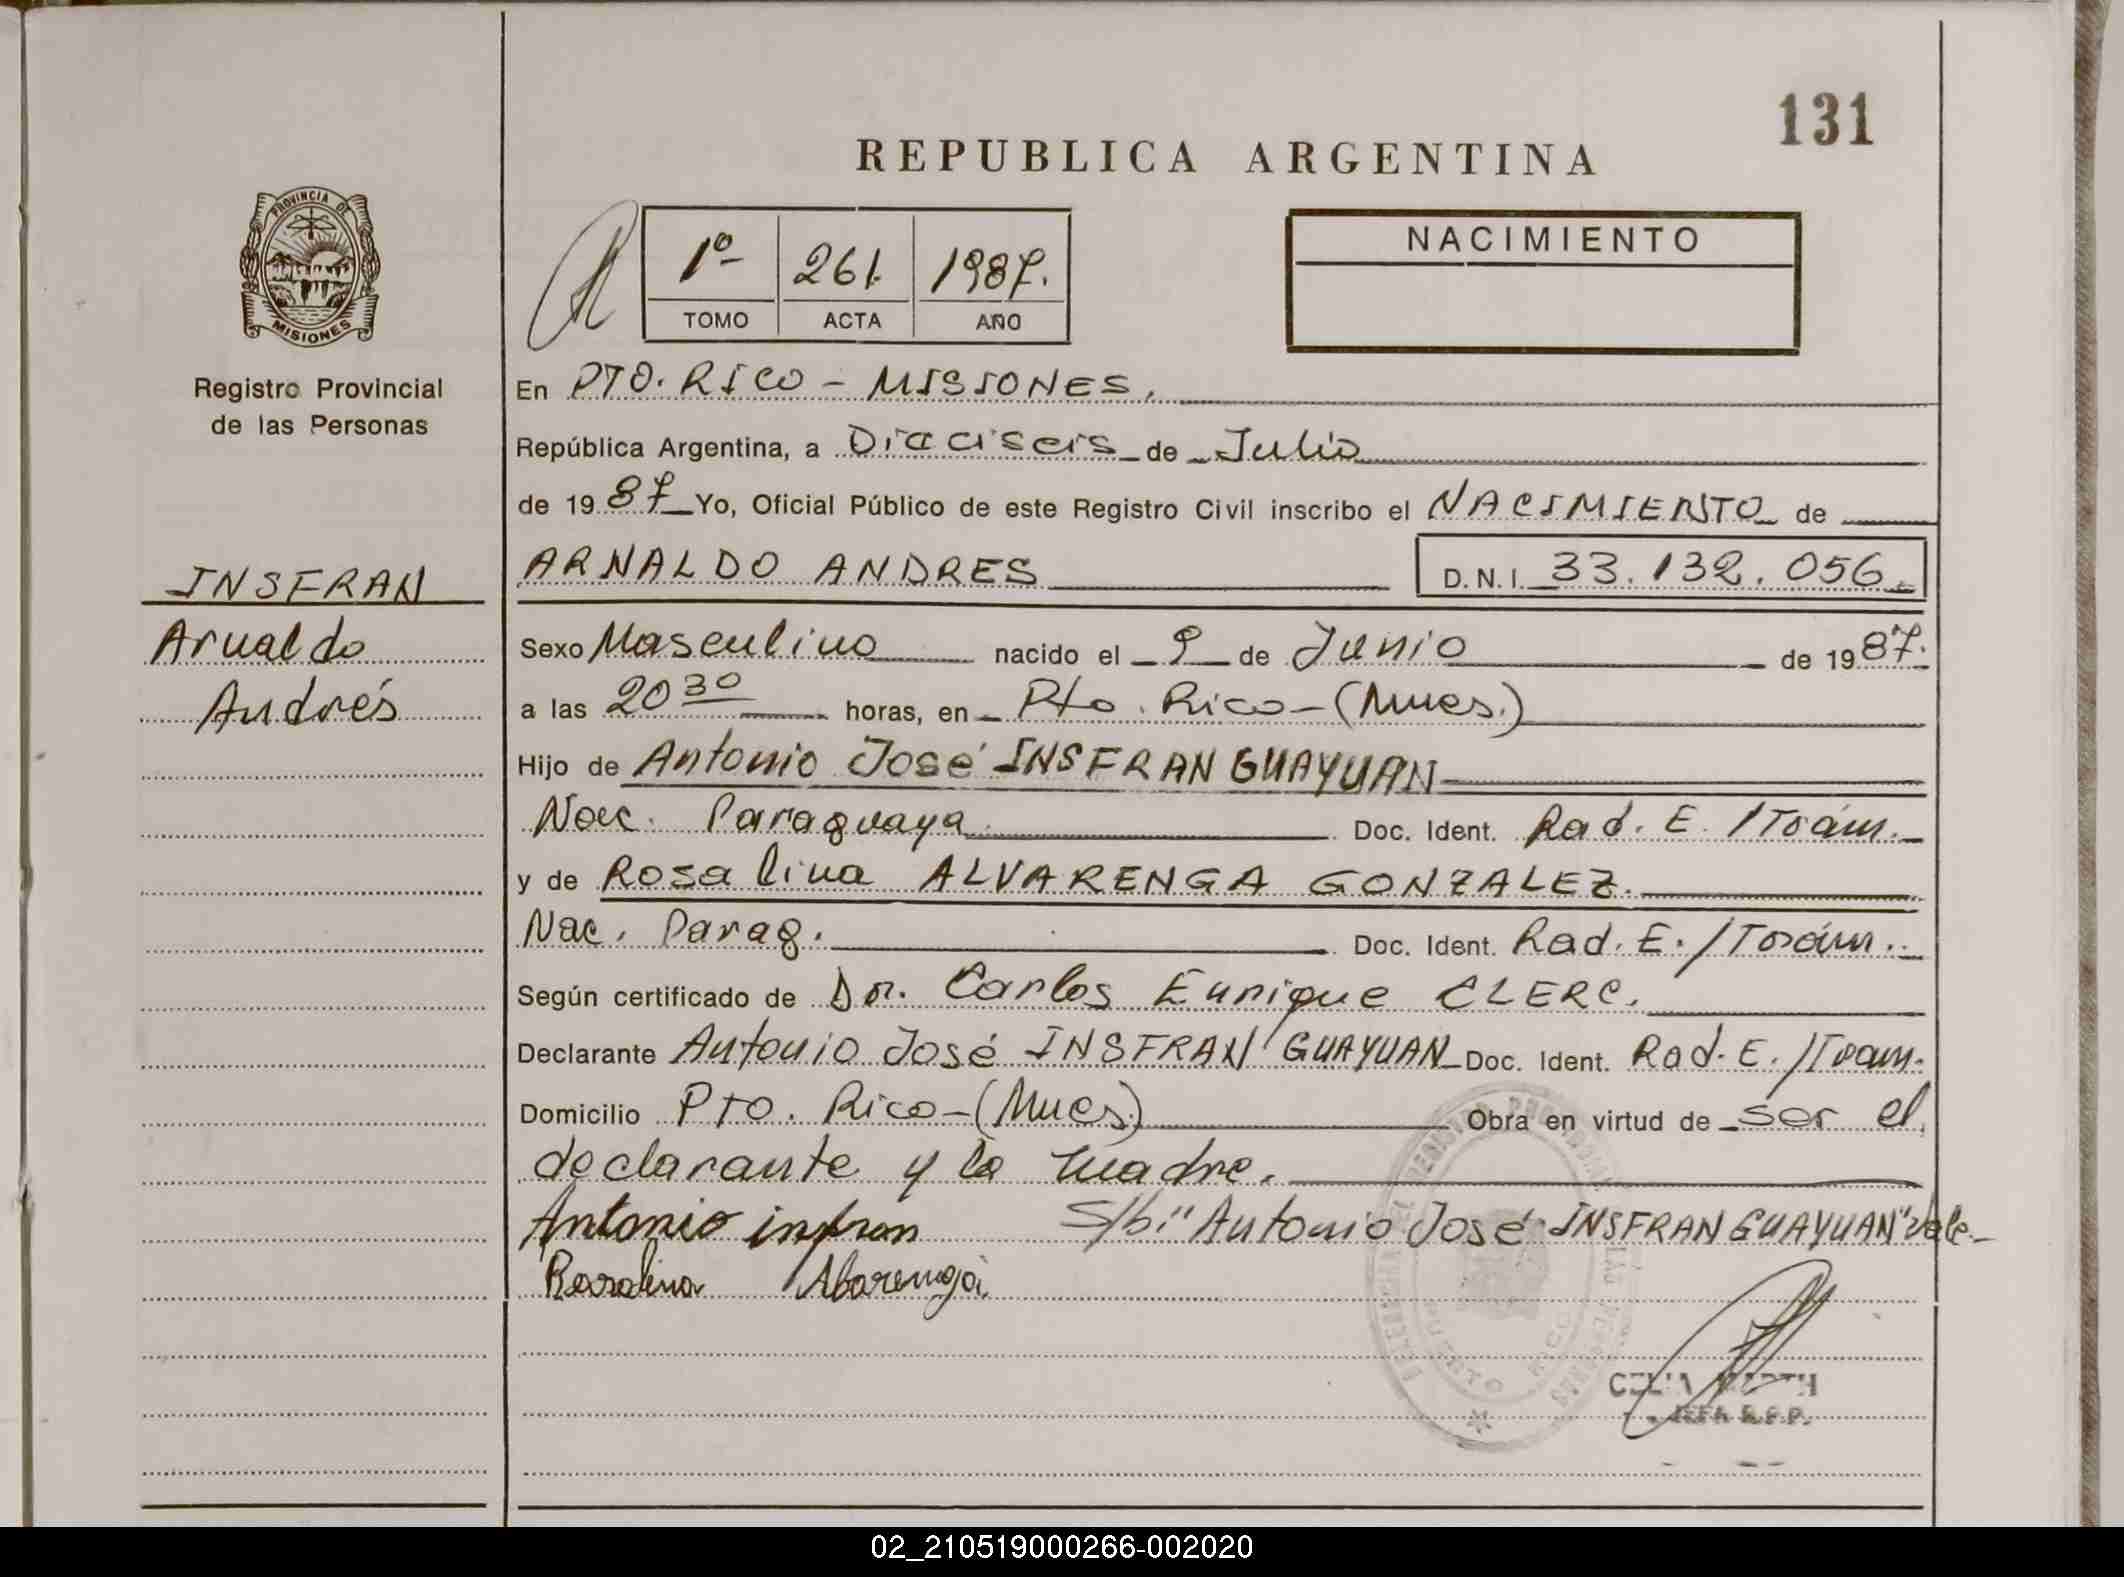 131
REPUBLICA ARGENTINA
PROVINCIA DE
MISIONES
Registro Provincial
de las Personas
1º 261. 1987.
TOMO ACTA AÑO
NACIMIENTO
En PTO. RICO - MISIONES.
República Argentina, a Dieciseis de Julio
de 19 87 Yo, Oficial Público de este Registro Civil inscribo el NACIMIENTO de
INSFRAN
Arnaldo
Andrés
ARNALDO ANDRES D.N.I. 33.132.056
Sexo Masculino nacido el 9 de Junio de 19 87.
a las 20 30 horas, en Pto. Rico - (Mnes.)
Hijo de Antonio José INSFRAN GUAYUAN
Nac. Paraguaya Doc. Ident. Rad. E. /Trám.
y de Rosalina ALVARENGA GONZALEZ.
Nac. Parag. Doc. Ident. Rad. E. /Trám.
Según certificado de Dr. Carlos Enrique CLERC.
Declarante Antonio José INSFRAN GUAYUAN Doc. Ident. Rad. E. /Trám.
Domicilio PTO. Rico - (Mnes.) Obra en virtud de ser el
declarante y la madre.
Antonio insfran S/b: "Antonio José INSFRAN GUAYUAN" Vale.
Rosalina Abarenga
CELIA
JEFA R.P.P.
02_210519000266-002020